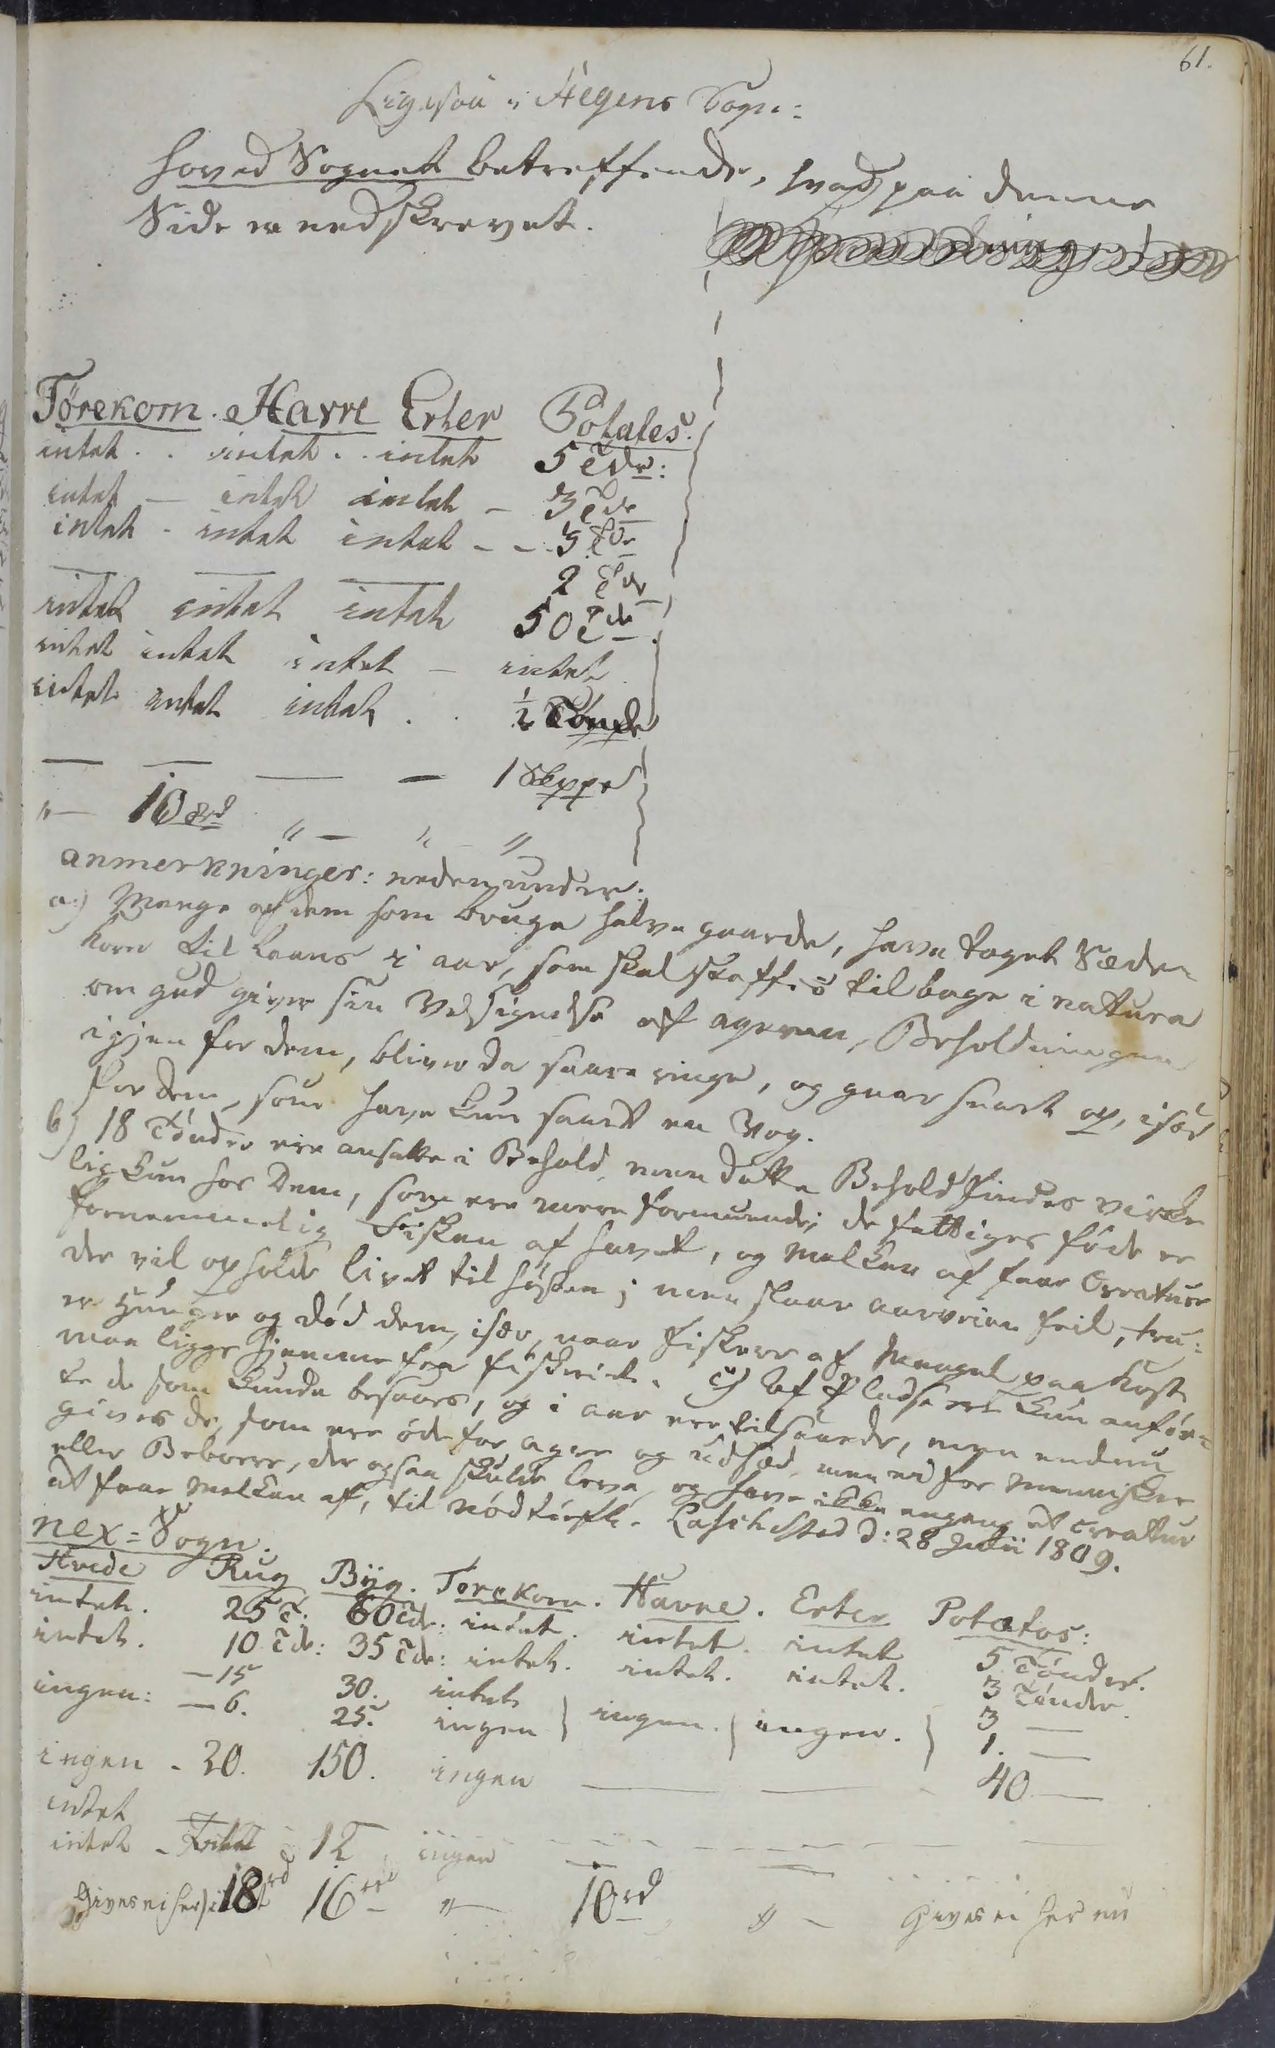 61.
Ligesaa i Hegens Sogn:
Hoved Sognet betreffende, hvad paa denne
Side er nedskrevet.
Törekorn. Havre Erter Potates.
intet . . intet . . intet 5 Tdr:
intet — intet intet - 3 Tdr
intet - intet intet - - 5 Tdr
— — — 2 Tdr
intet intet intet 50 Tdr
intet intet intet — intet.
intet intet intet . . ½ Tönde
— — — — 1 Skeppe
"— 10 ord "— " "
anmerkninger: nedenunder:
a) Mange af dem som bruge halve gaarde, have taget Sæde-
korn til Laans i aar, som skal skaffes tilbage i natura
om gud giver sin Velsignelse af ageren, Beholdningen
igjen for dem, bliver da saare ringe, og gaar snart op, især
for dem, som have kun saaet en Vog.
b) 18 Tönder ere ansatte i Behold, men dette Behold findes virke
lig kun hos Dem, som ere mere formuende; de fattiges föde er
fornemmelig Fisken af havet, og Melken af faae Creature
der vil opholde livet til høsten; men slaar aarveien feil, tru:
er Hunger og død dem, især, naar Fiskere af Mangel paa Kost
maa ligge hjemme fra fiskeriet. c) Af Pladse ere kun anför-
te de som kunde besaaes, og i aar ere tilsaaede, men endnu
gives de, som ere öde for ager og udsæd, men ei for mennisker
eller Beboere, der ogsaa skulde leve, og have ikke engang et Creatur
at faae Melken af, til nödtörft. d: 28 Julii 1809.
nex=Sogn.
Hvede Rug Byg. Torekorn. Havre. Erter Potatos:
intet. 25 T. 60 Tdr: intet. intet. intet 5 Tönder.
intet. 10 Tdr: 35 Tdr: intet. intet. intet. 3 Tönder.
—15 30. intet 3 —
ingen: —6. 25. ingen } ingen. } ingen. } 1. —
ingen - 20. 150. ingen — — - 40 —
intet
intet - 12 ingen — — — —
Gives ei her 18 ord 16 ord "— 10 ord "— Gives ei her en